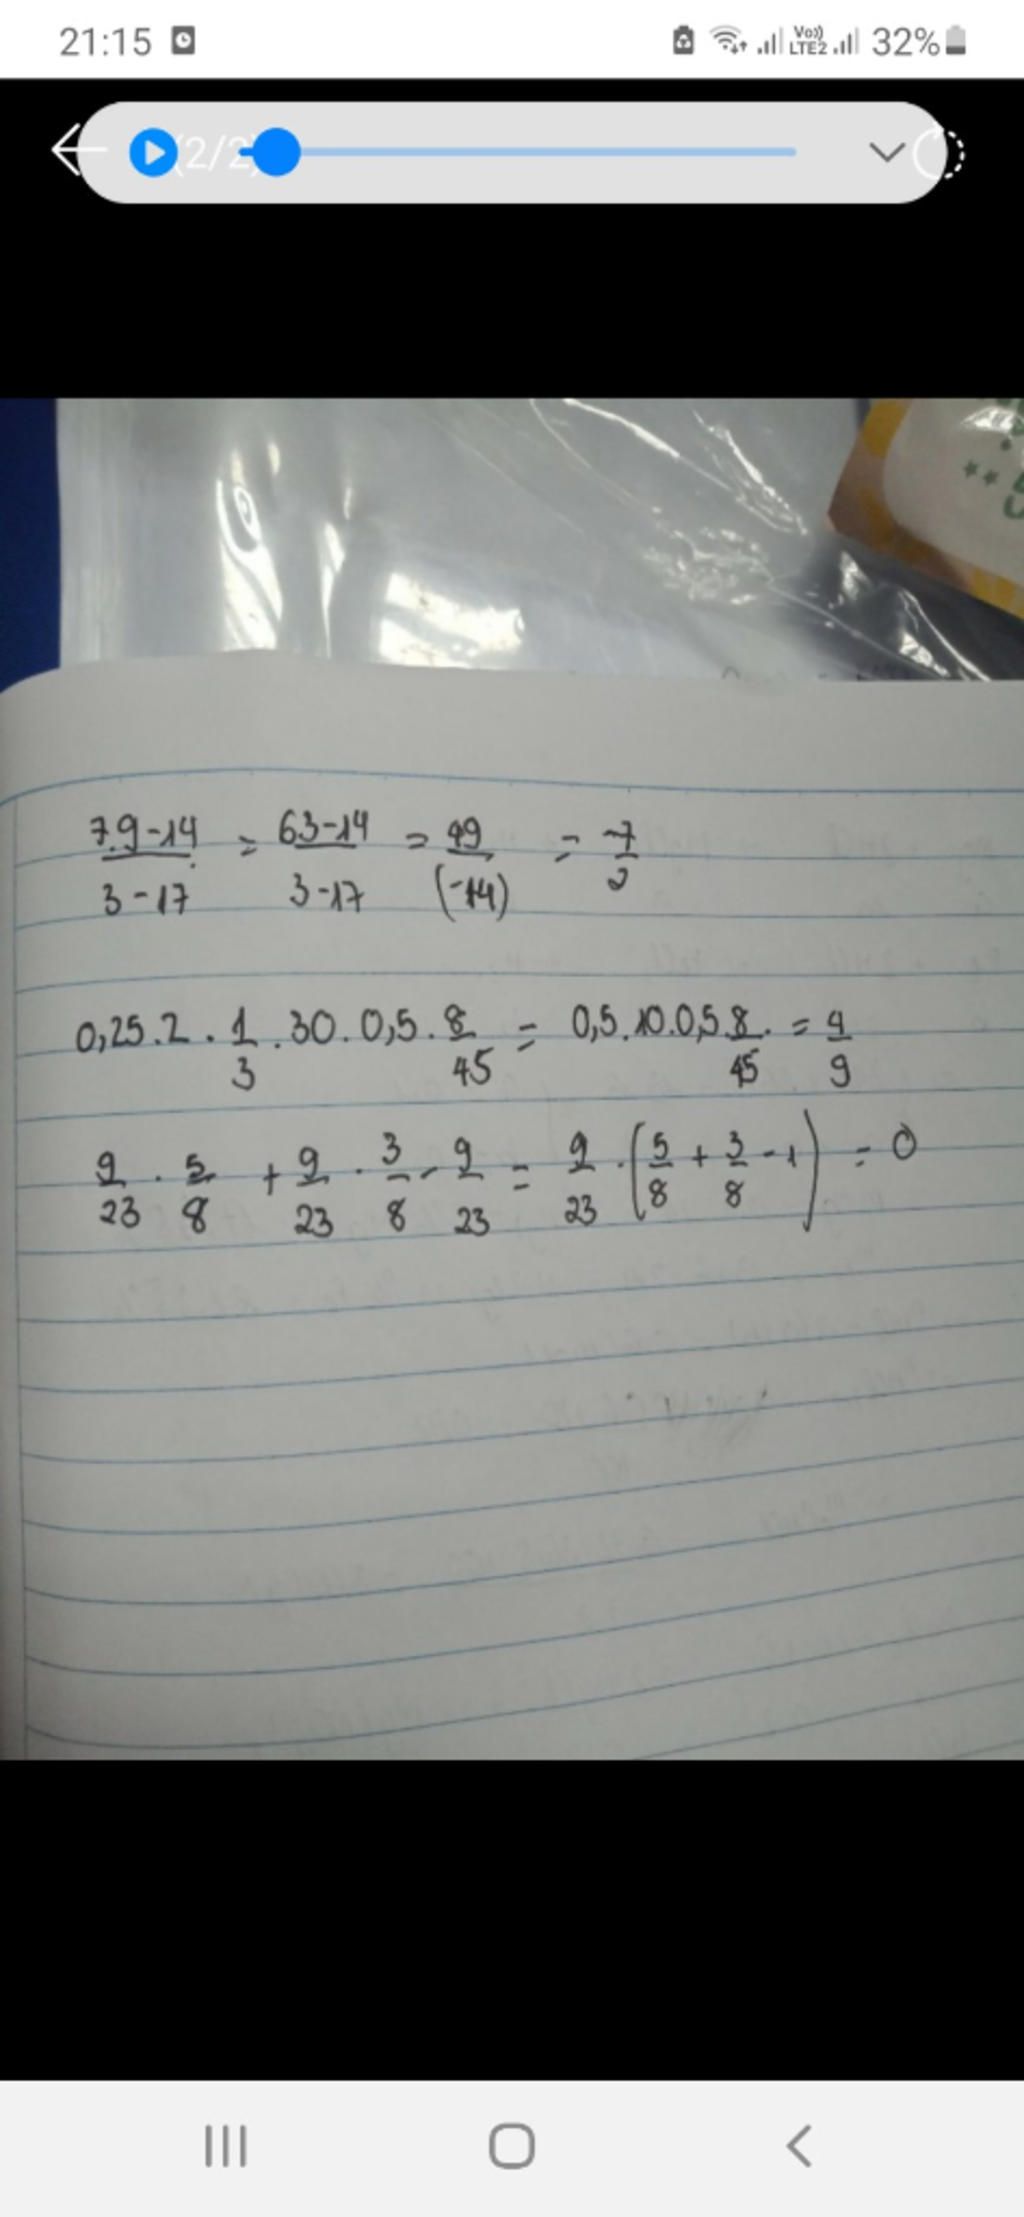 21:15 Vo)) LTE2 32%
(2/2)
7.9-14/3-17 = 63-14/3-17 = 49/(-14) = -7/2
0,25.2.1/3.30.0,5.8/45 = 0,5.10.0,5.8/45. = 4/9
9/23 . 5/8 + 9/23 . 3/8 - 9/23 = 9/23 . (5/8 + 3/8 - 1) = 0